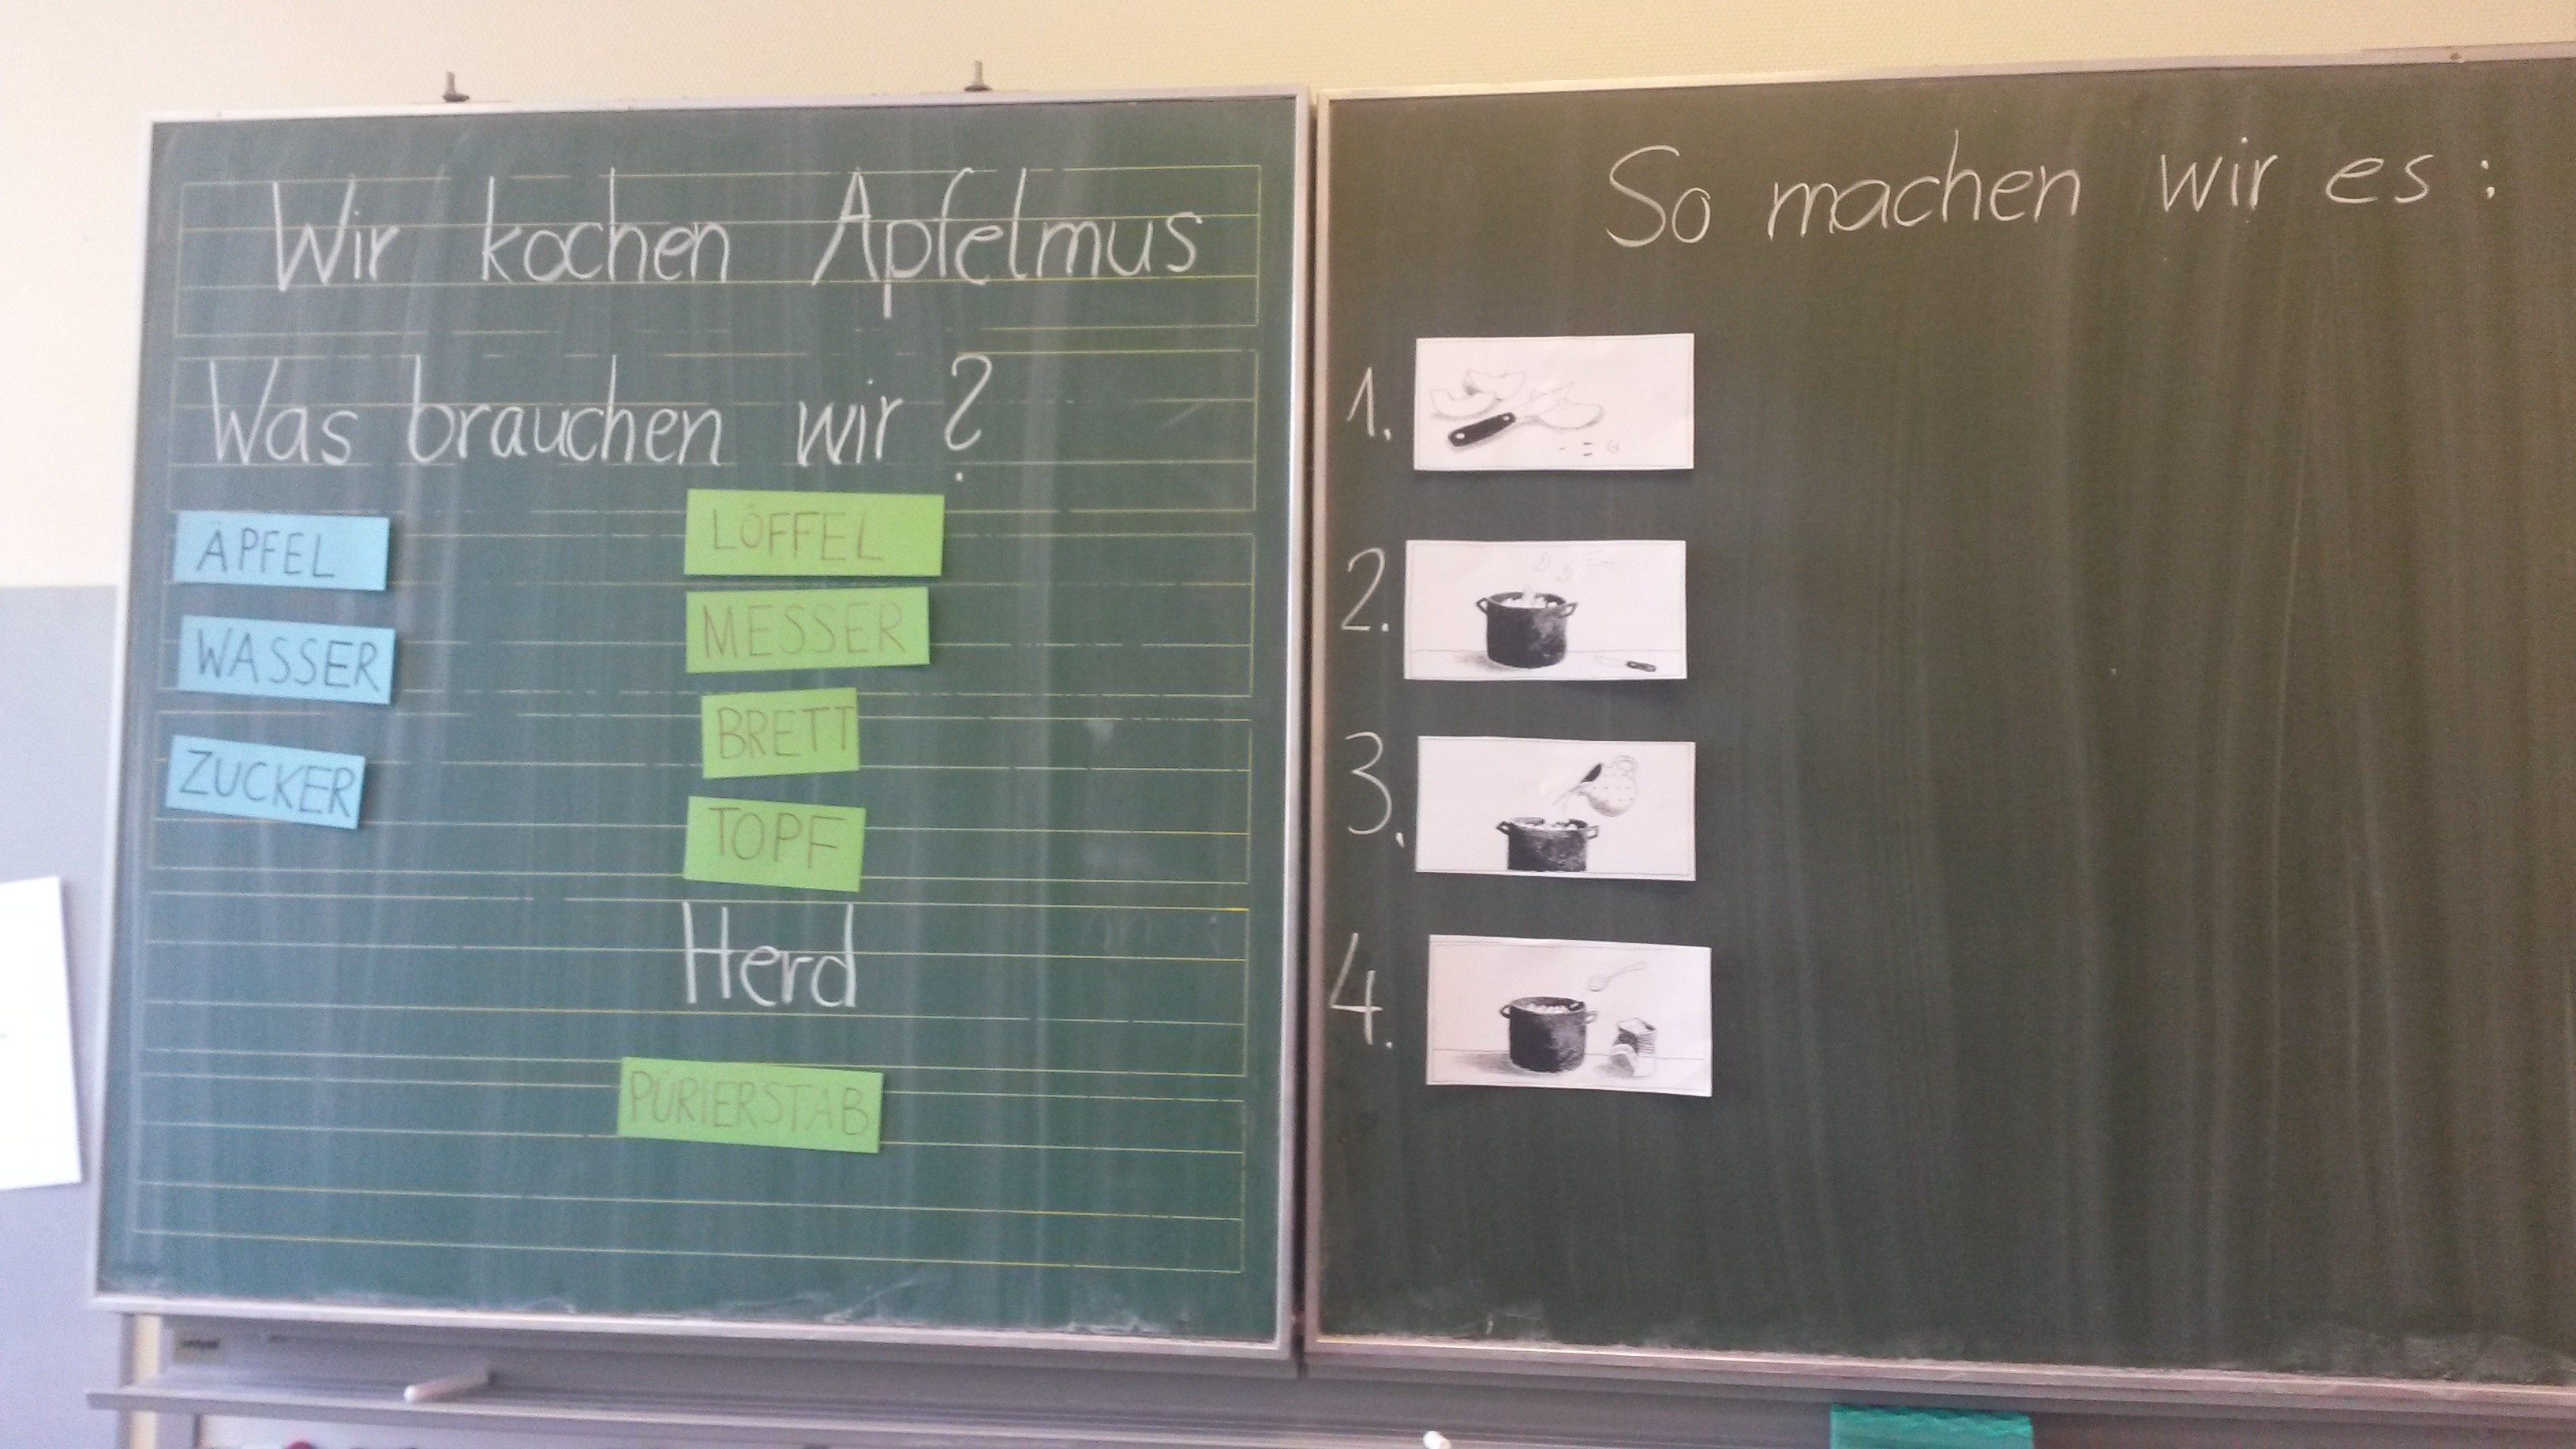 Wir kochen Apfelmus
Was brauchen wir?
ÄPFEL
WASSER
ZUCKER
LÖFFEL
MESSER
BRETT
TOPF
Herd
PÜRIERSTAB
So machen wir es:
1.
2.
3.
4.